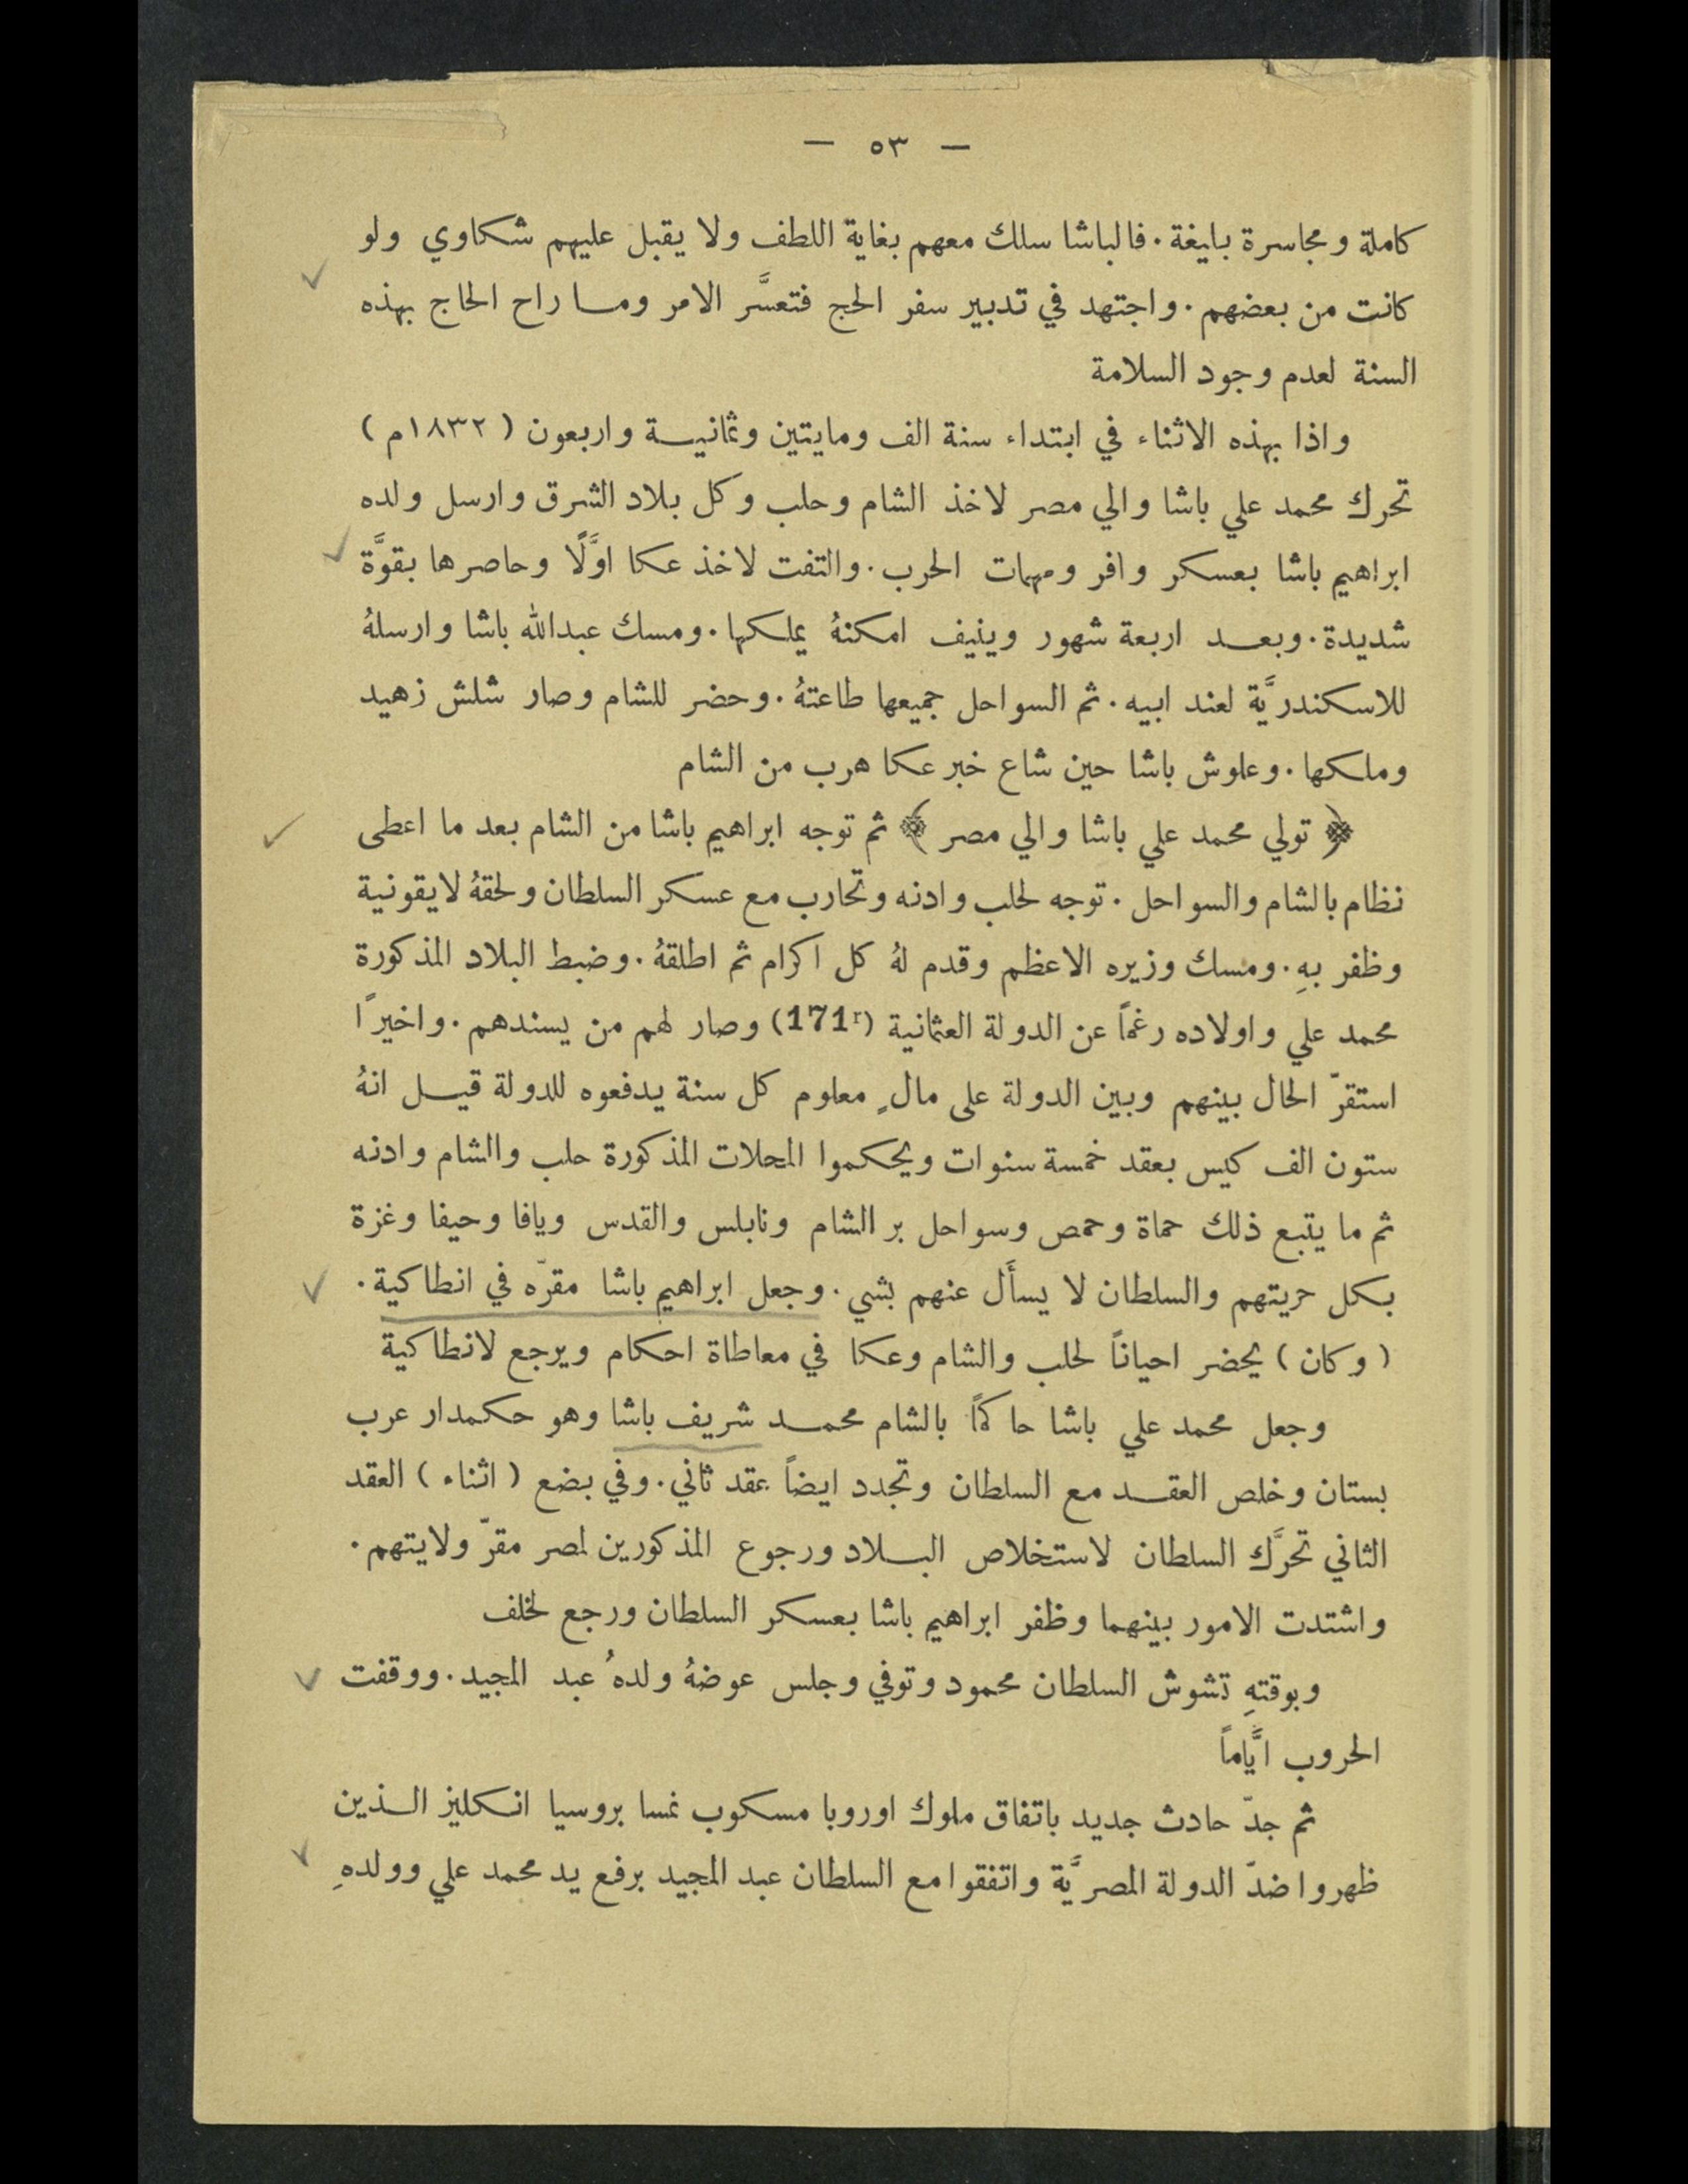 — ٥٣ —
كاملة ومجاسرة بليغة. فالباشا سلك معهم بغاية اللطف ولا يقبل عليهم شكاوي ولو
كانت من بعضهم. واجتهد في تدبير سفر الحج فتعسَّر الامر وما راح الحاج بهذه
السنة لعدم وجود السلامة
واذا بهذه الاثناء في ابتداء سنة الف ومايتين وثمانية واربعون (١٨٣٢م)
تحرك محمد علي باشا والي مصر لاخذ الشام وحلب وكل بلاد الشرق وارسل ولده
ابراهيم باشا بعسكر وافر ومهمات الحرب. والتفت لاخذ عكا اوَّلًا وحاصرها بقوَّة
شديدة. وبعد اربعة شهور وينيف امكنهُ يملكها. ومسك عبدالله باشا وارسلهُ
للاسكندريَّة لعند ابيه. ثم السواحل جميعها طاعتهُ. وحضر للشام وصار شلش زهيد
وملكها. وعلوش باشا حين شاع خبر عكا هرب من الشام
﴿ تولي محمد علي باشا والي مصر ﴾ ثم توجه ابراهيم باشا من الشام بعد ما اعطى
نظام بالشام والسواحل. توجه لحلب وادنه وتحارب مع عسكر السلطان ولحقهُ لايقونية
وظفر بهِ. ومسك وزيره الاعظم وقدم لهُ كل اكرام ثم اطلقهُ. وضبط البلاد المذكورة
محمد علي واولاده رغماً عن الدولة العثمانية (171r) وصار لهم من يسندهم. واخيرًا
استقرّ الحال بينهم وبين الدولة على مالٍ معلوم كل سنة يدفعوه للدولة قيل انهُ
ستون الف كيس بعقد خمسة سنوات ويحكموا المحلات المذكورة حلب والشام وادنه
ثم ما يتبع ذلك حماة وحمص وسواحل بر الشام ونابلس والقدس ويافا وحيفا وغزة
بكل حريتهم والسلطان لا يسأَل عنهم بشي. وجعل ابراهيم باشا مقرّه في انطاكية.
(وكان) يحضر احياناً لحلب والشام وعكا في معاطاة احكام ويرجع لانطاكية
وجعل محمد علي باشا حاكماً بالشام محمد شريف باشا وهو حكمدار عرب
بستان وخلص العقد مع السلطان وتجدد ايضاً عقد ثاني. وفي بضع (اثناء) العقد
الثاني تحرَّك السلطان لاستخلاص البلاد ورجوع المذكورين لمصر مقرّ ولايتهم.
واشتدت الامور بينهما وظفر ابراهيم باشا بعسكر السلطان ورجع لخلف
وبوقتهِ تشوش السلطان محمود وتوفي وجلس عوضهُ ولدهُ عبد المجيد. ووقفت
الحروب ايَّاماً
ثم جدّ حادث جديد باتفاق ملوك اوروبا مسكوب نمسا بروسيا انكليز الذين
ظهروا ضدّ الدولة المصريَّة واتفقوا مع السلطان عبد المجيد برفع يد محمد علي وولدهِ